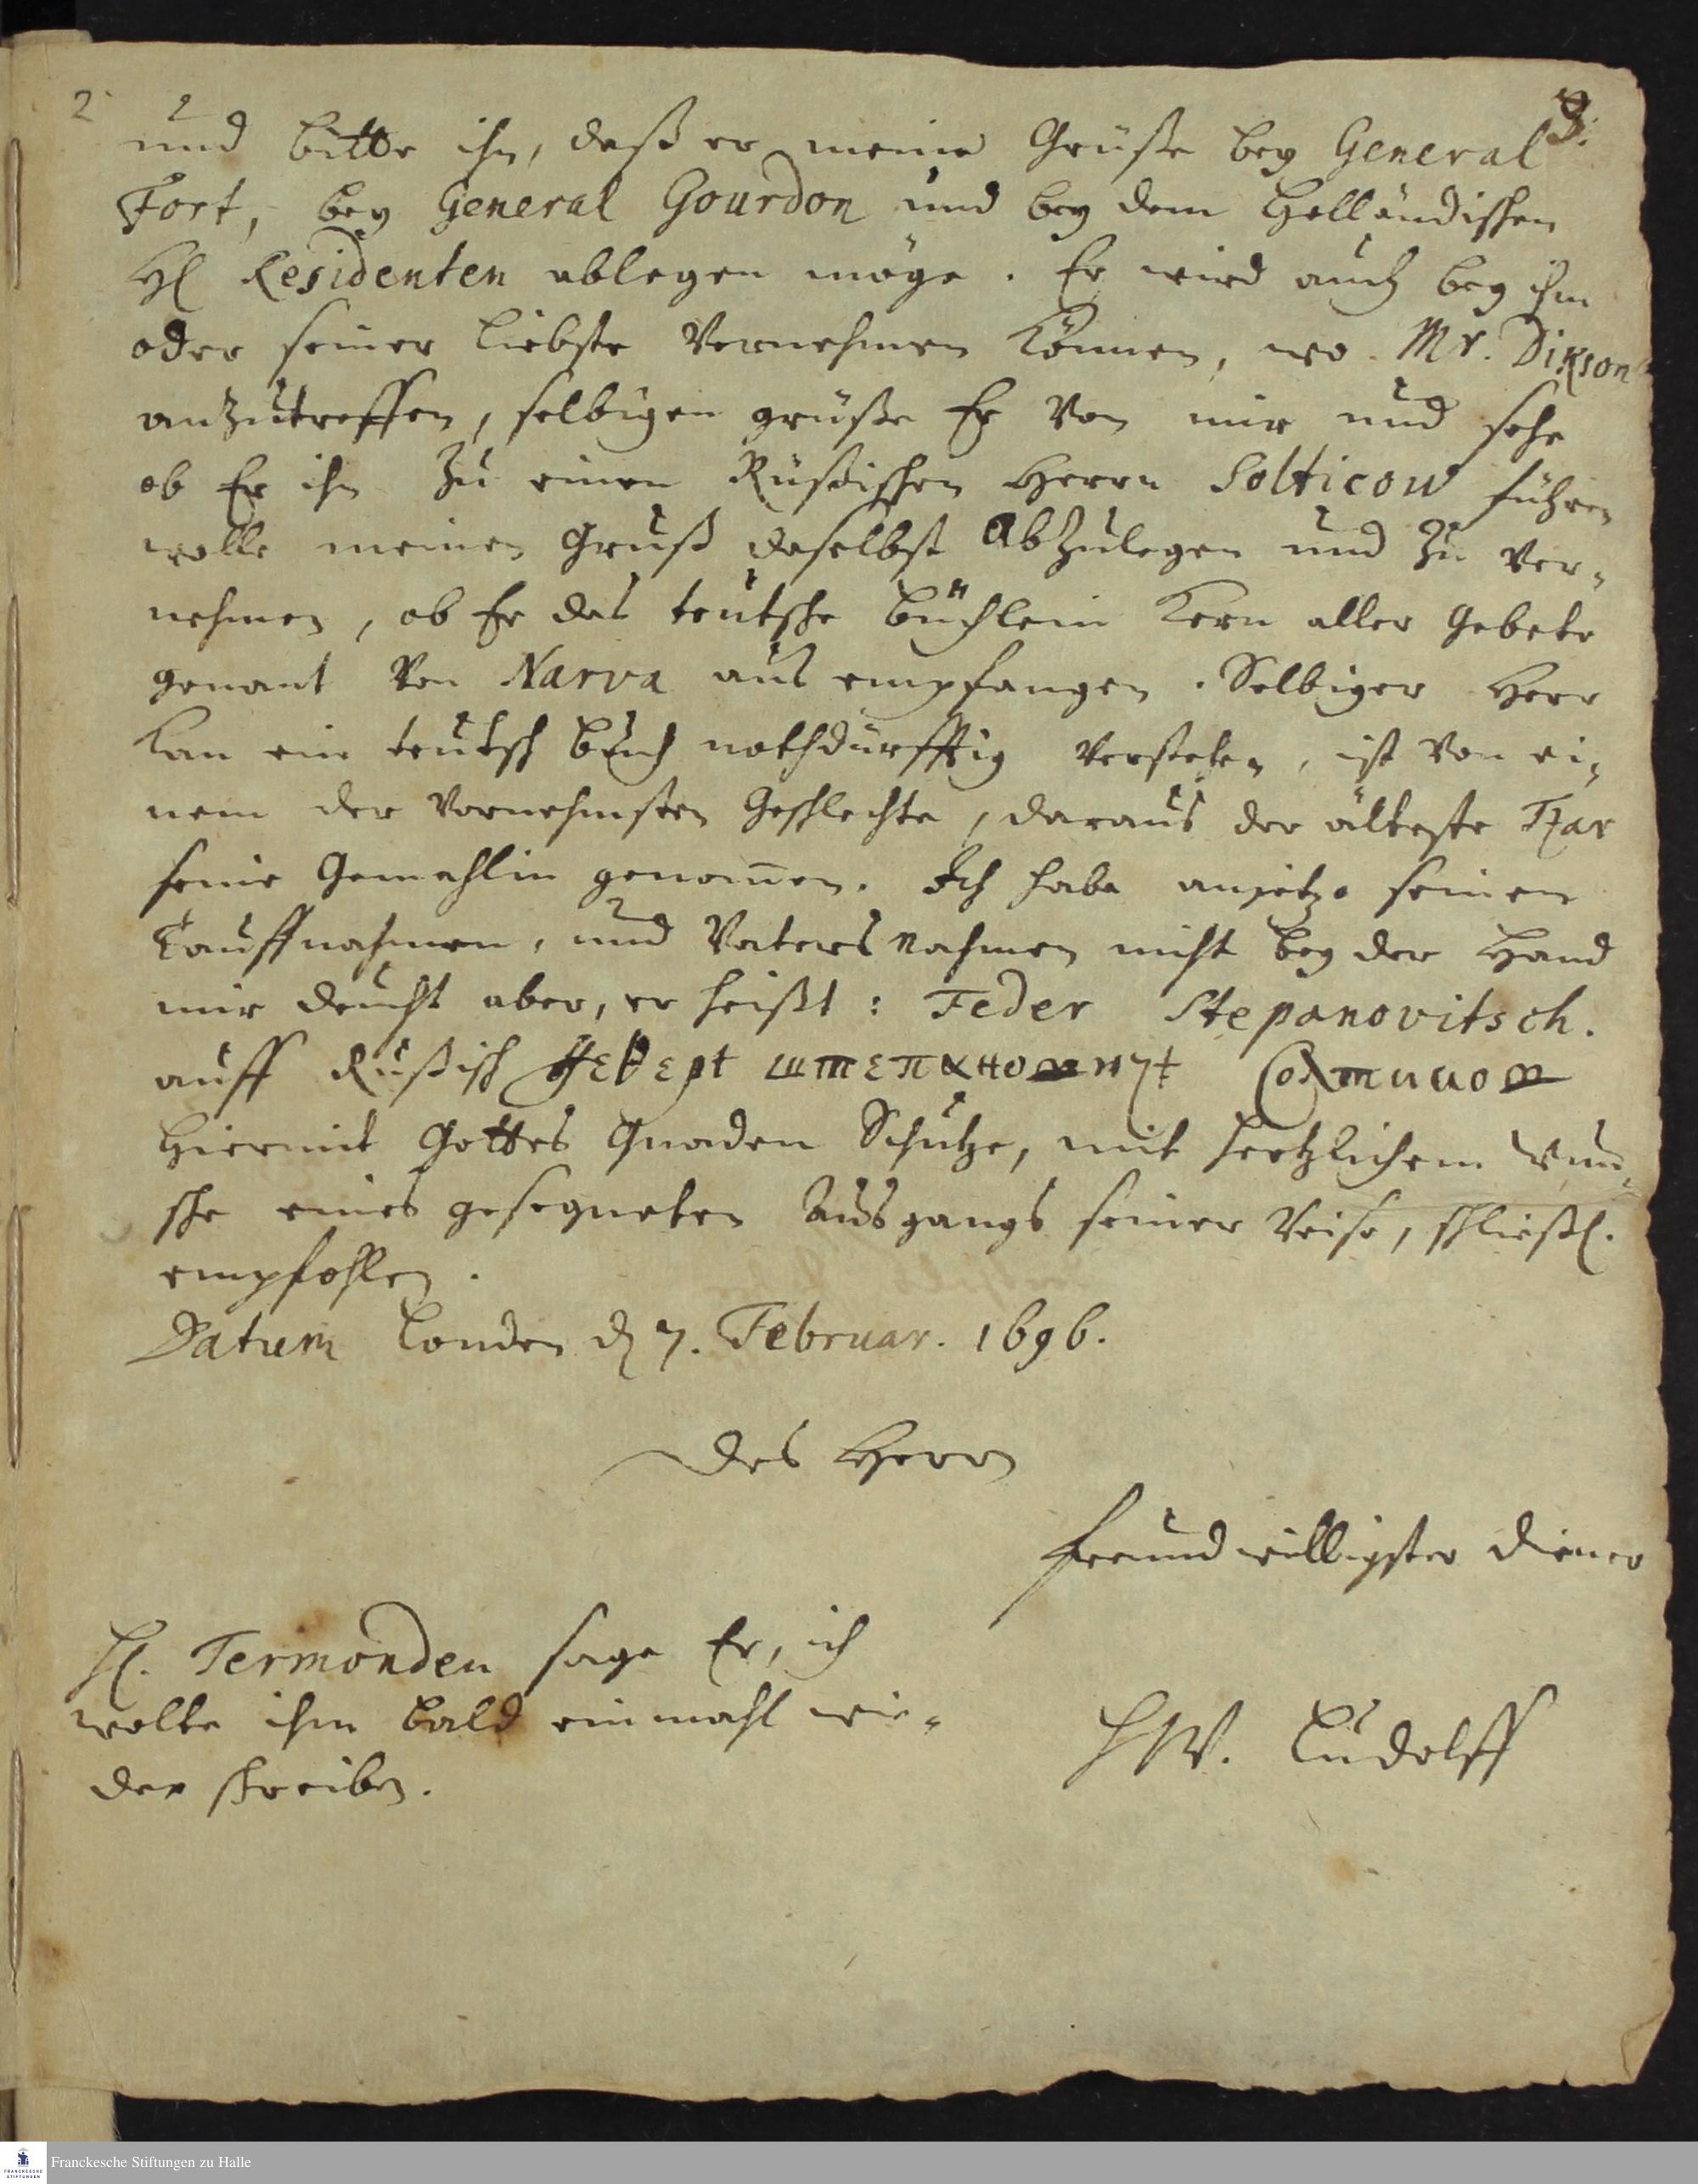 2 3.
und bitte ihn, daß er meine Grüße bey General
Fort, bey General Gourdon und bey dem Holländischen
Hl Residenten ablegen möge. Er wird auch bey ihm
oder seiner Liebste Vernehmen können, wo Mr. Dikson
anzutreffen, selbigen grüße Er Von mir und sehe
ob Er ihn zu einen Rußischen Herrn Solticow führen
wolle meinen Gruß daselbst abzulegen und zu Ver-
nehmen, ob Er das teutsche büchlein Kern aller Gebete
genant Von Narva aus empfangen. Selbiger Herr
kan ein teutsch buch nothdürfftig Verstehen, ist Von ei-
nem der Vornehmsten Geschlechte, daraus der älteste Tzar
seine Gemahlin genom̄en. Ich habe anjetzo seinen
Tauffnahmen, und Vaters nahmen nicht bey der Hand
mir deucht aber, er heißt: Feder Stepanovitsch.
auff Rußisch
Hiermit Gottes Gnaden Schutze, mit hertzlichem Wun-
sche eines gesegneten Ausgangs seiner Reise, schließl.
empfohlen.
Datum Londen d 7. Februar. 1696.
des Herrn
freundwilligster Diener
Hl. Termonden sage Er, ich
wolte ihm bald einmahl wie-
der schreiben.
HW. Ludolff
Franckesche Stiftungen zu Halle